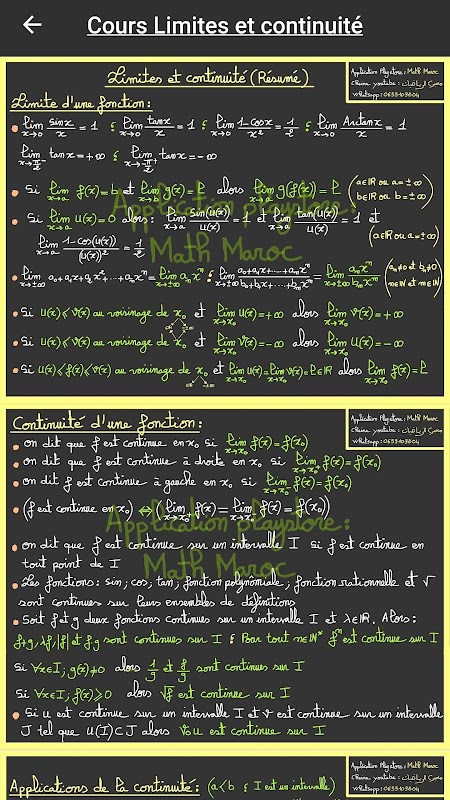 Cours Limites et continuité
Limites et continuité (Résumé)
Application Playstore : Math Maroc
Chaine youtube : رياضيات
Whatsapp : 0633403604
Limite d'une fonction :
• lim x→0 sinx/x = 1 ; lim x→0 tanx/x = 1 ; lim x→0 1-cosx/x² = 1/2 ; lim x→0 Arctanx/x = 1
lim x→π/2⁻ tanx = +∞ ; lim x→π/2⁺ tanx = -∞
• Si lim x→a f(x) = b et lim x→b g(x) = l alors lim x→a g(f(x)) = l (a∈IR ou a = ±∞ b∈IR ou b = ±∞)
• Si lim x→a u(x) = 0 alors : lim x→a sin(u(x))/u(x) = 1 et lim x→a tan(u(x))/u(x) = 1 et
lim x→a 1-cos(u(x))/(u(x))² = 1/2 (a∈IR ou a = ±∞)
Application playstore :
Math Maroc
• lim x→±∞ a₀+a₁x+a₂x²+...+aₙxⁿ = lim x→±∞ aₙxⁿ ; lim x→±∞ a₀+a₁x+...+aₙxⁿ/b₀+b₁x+...+bₘxᵐ = lim x→±∞ aₙxⁿ/bₘxᵐ (aₙ≠0 et bₘ≠0 n∈IN et m∈IN)
• Si u(x) ≤ v(x) au voisinage de x₀ et lim x→x₀ u(x) = +∞ alors lim x→x₀ v(x) = +∞
• Si u(x) ≤ v(x) au voisinage de x₀ et lim x→x₀ v(x) = -∞ alors lim x→x₀ u(x) = -∞
• Si u(x) ≤ f(x) ≤ v(x) au voisinage de x₀ et lim x→x₀ u(x) = lim x→x₀ v(x) = l∈IR alors lim x→x₀ f(x) = l
Continuité d'une fonction :
Application Playstore : Math Maroc
Chaine youtube : رياضيات
Whatsapp : 0633403604
• on dit que f est continue en x₀ si lim x→x₀ f(x) = f(x₀)
• on dit que f est continue à droite en x₀ si lim x→x₀⁺ f(x) = f(x₀)
• on dit f est continue à gauche en x₀ si lim x→x₀⁻ f(x) = f(x₀)
• (f est continue en x₀) ⇔ (lim x→x₀⁺ f(x) = lim x→x₀⁻ f(x) = f(x₀))
Application playstore :
Math Maroc
• on dit que f est continue sur un intervalle I si f est continue en
tout point de I
• Les fonctions : sin ; cos ; tan ; fonction polynômiale ; fonction rationnelle et √
sont continues sur leurs ensembles de définitions
• Soit f et g deux fonctions continues sur un intervalle I et λ∈IR. Alors :
f+g, λf, |f| et fg sont continues sur I ; Pour tout n∈IN* fⁿ est continue sur I
Si ∀x∈I ; g(x)≠0 alors 1/g et f/g sont continues sur I
Si ∀x∈I ; f(x)≥0 alors √f est continue sur I
• Si u est continue sur un intervalle I et v est continue sur un intervalle
J tel que u(I)⊂J alors v∘u est continue sur I
Applications de la continuité : (a<b ; I est un intervalle)
Application Playstore : Math Maroc
Chaine youtube : رياضيات
Whatsapp : 0633403604